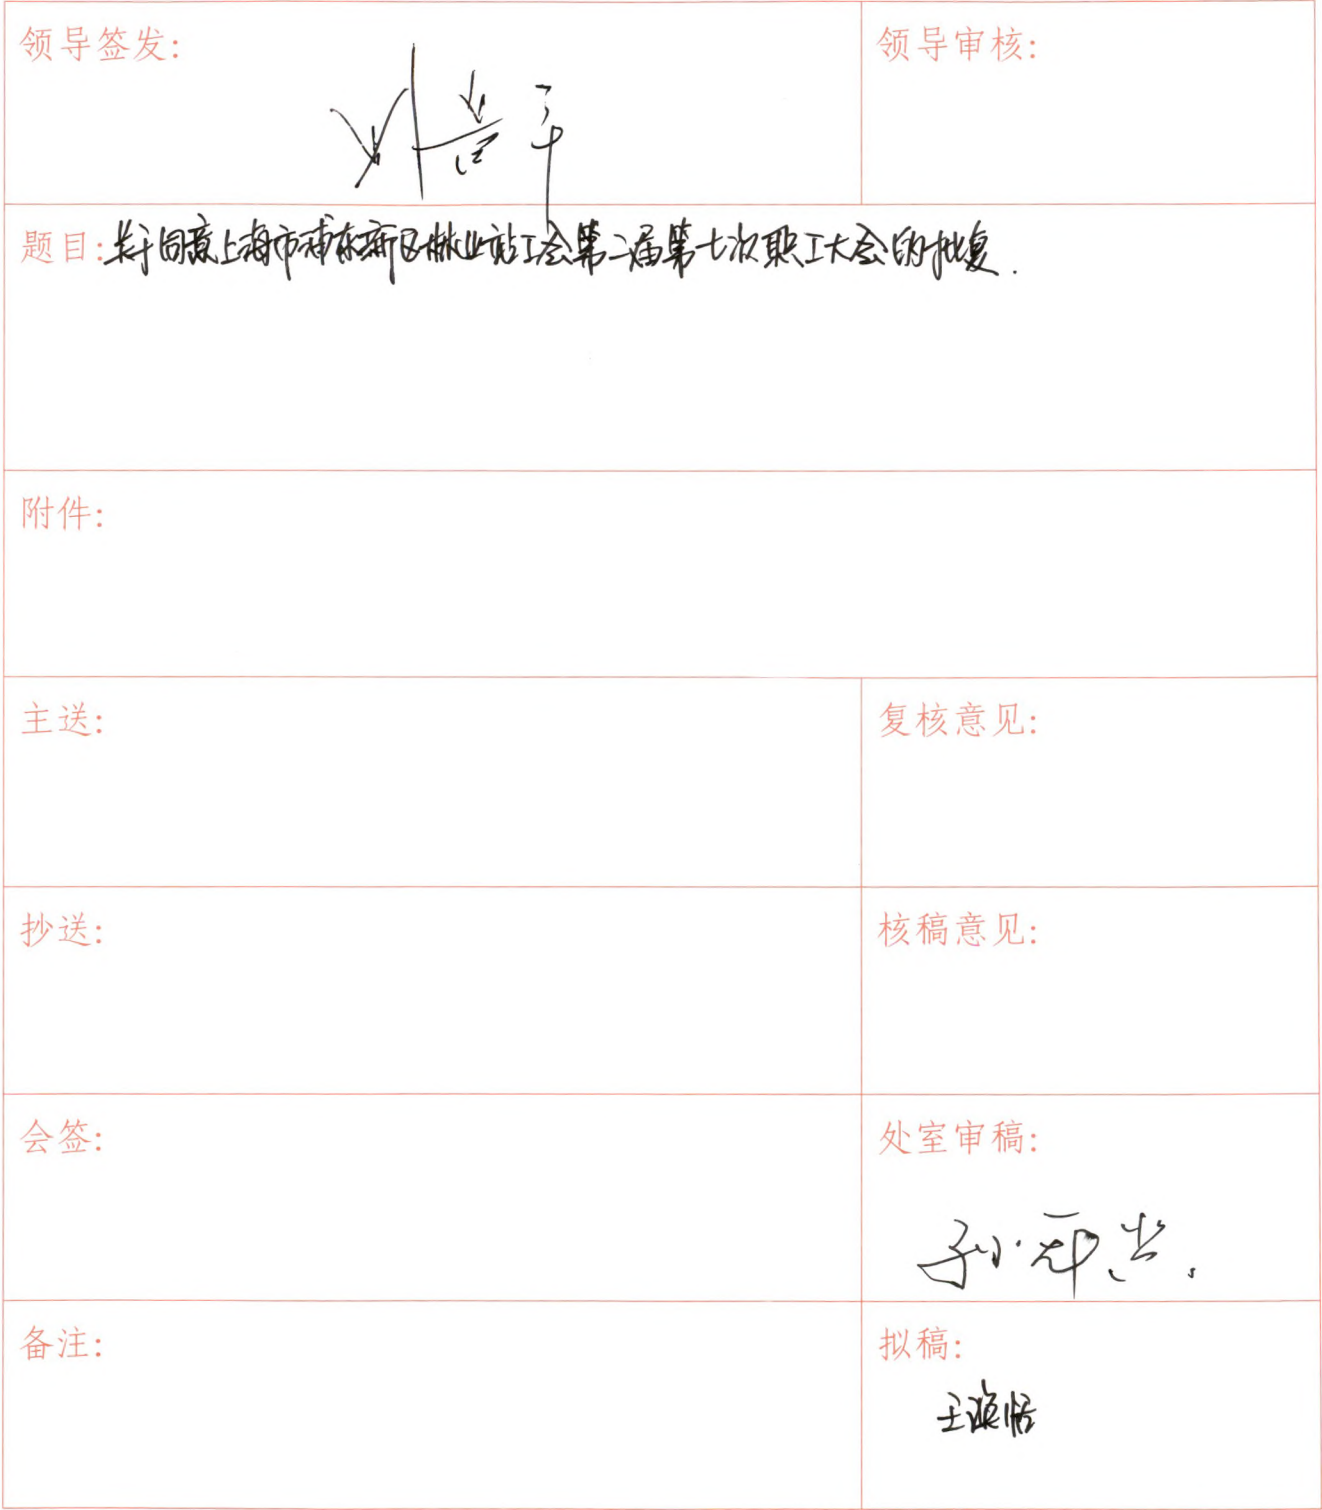 领导签发:
领导审核:
题目:关于同意上海市浦东新区林业站工会第二届第七次职工大会的批复.
附件:
主送:
复核意见:
抄送:
核稿意见:
会签:
处室审稿:
孙
备注:
拟稿:
王